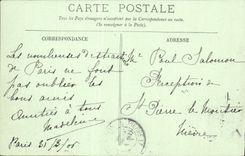 CARTE POSTALE
Tous les Pays étrangers n'acceptent pas la Correspondance au recto.
(Se renseigner à la Poste).
CORRESPONDANCE
ADRESSE
Les nombreuses distractions
de Paris ne font
pas oublier les
bons amis
Amitiés à tous
Madeleine
Paris 25/3/05
Mr Paul Salomon
Perception de
St Pierre le Moutier
Nièvre